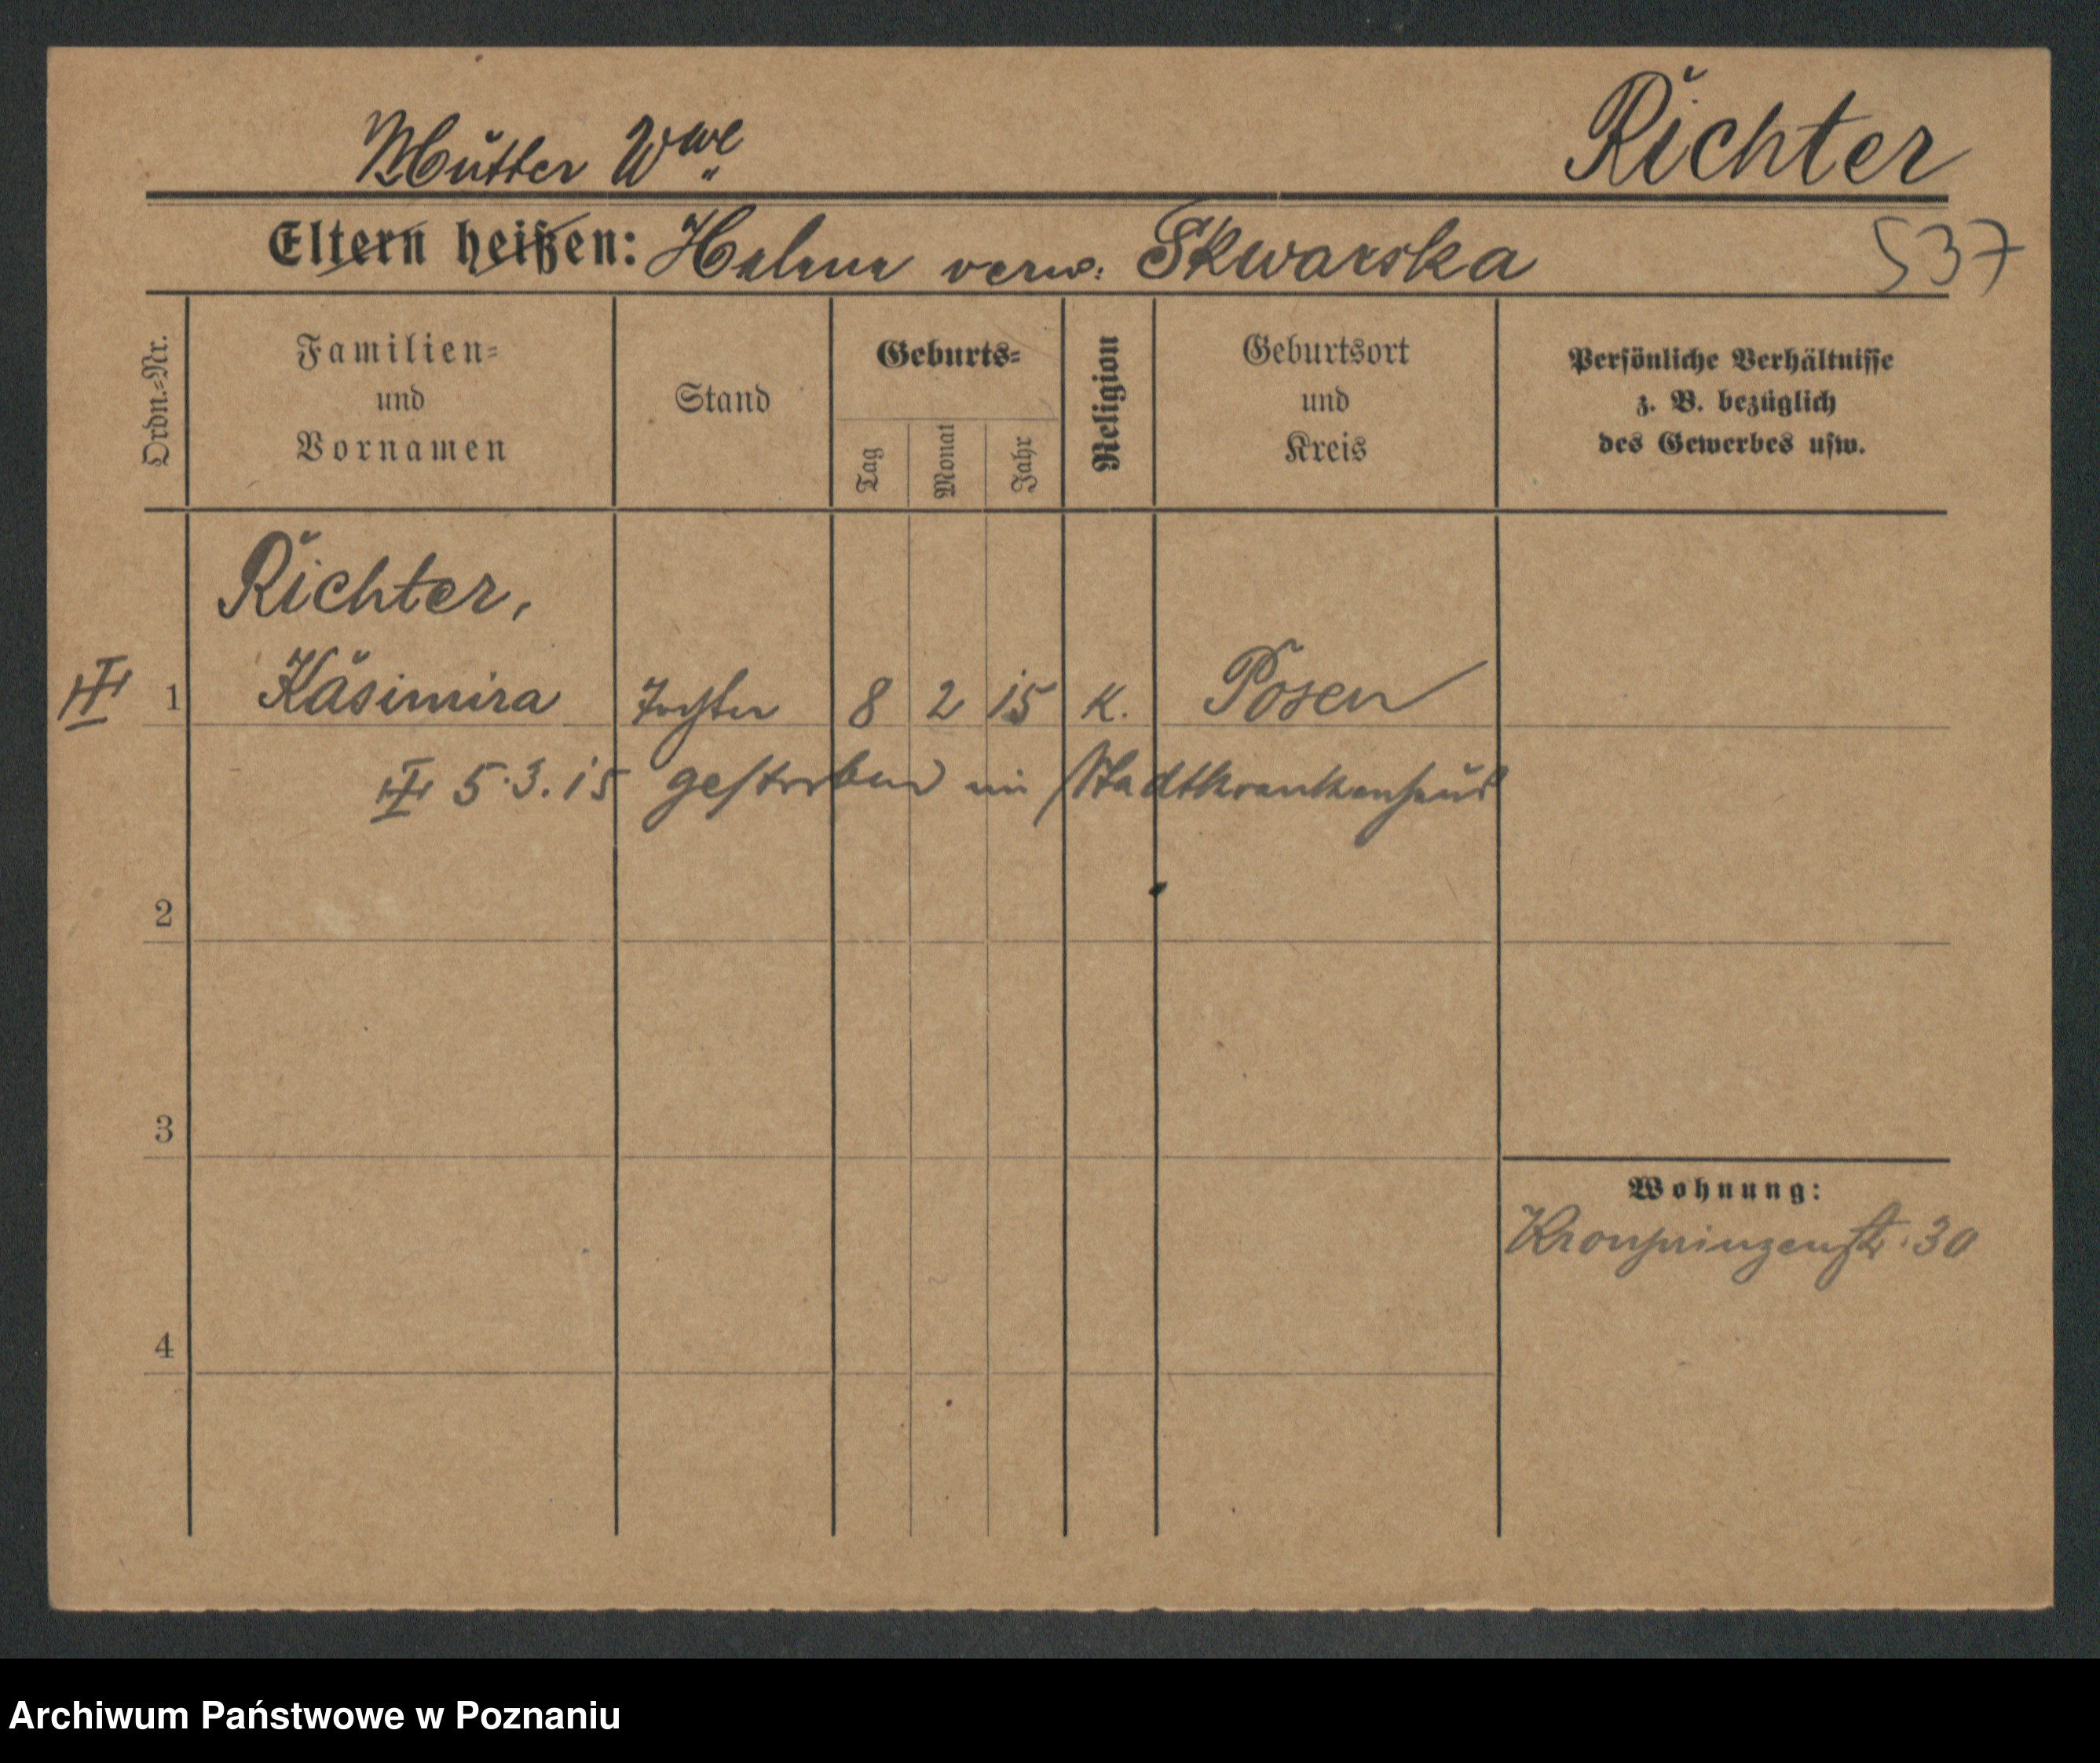 Mutter Wwe
Richter
Eltern heißen: Helene verw. Skwarska
537
Ordn.=Nr.
Familien=
und
Vornamen
Stand
Geburts=
Tag
Monat
Jahr
Religion
Geburtsort
und
Kreis
Persönliche Verhältnisse
z. B. bezüglich
des Gewerbes usw.
Richter,
III 1 Kasimira Tochter 8 2 15 K. Posen
III 5.3.15 gestorben im Stadtkrankenhaus
2
3
Wohnung:
Kronprinzenstr. 30
4
Archiwum Państwowe w Poznaniu